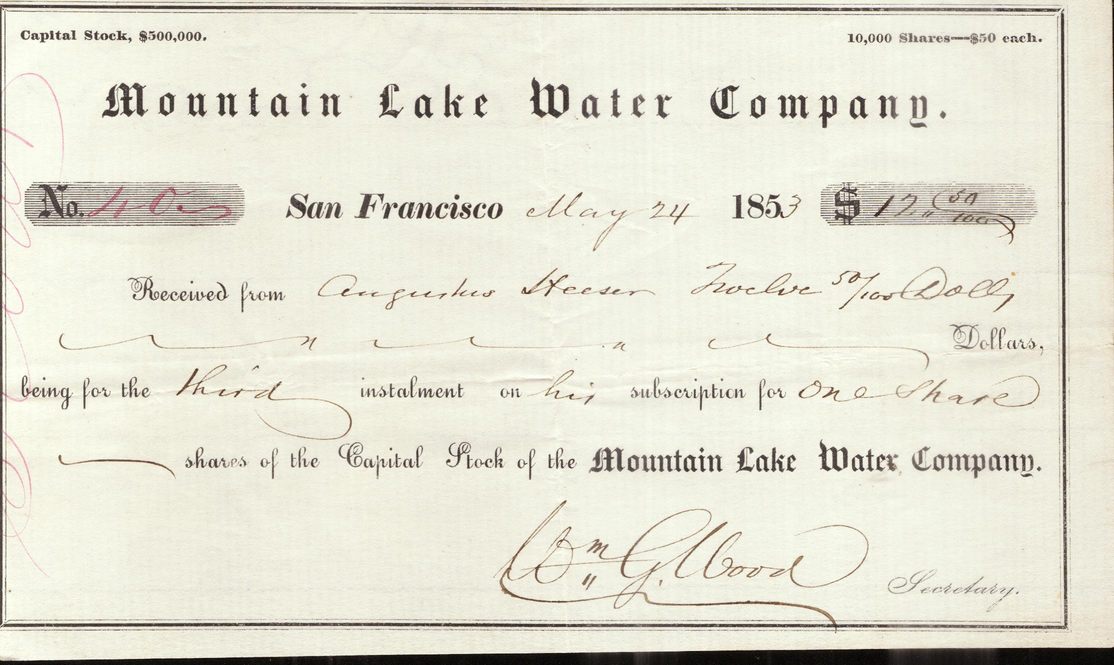 Capital Stock, $500,000. 10,000 Shares—$50 each.
Mountain Lake Water Company.
No. 40 San Francisco May 24 1853 $ 12 " 50/100
Received from Augustus Heeser Twelve 50/100 Dolls
" " Dollars,
being for the third instalment on his subscription for One Share
shares of the Capital Stock of the Mountain Lake Water Company.
Wm G. Wood Secretary.